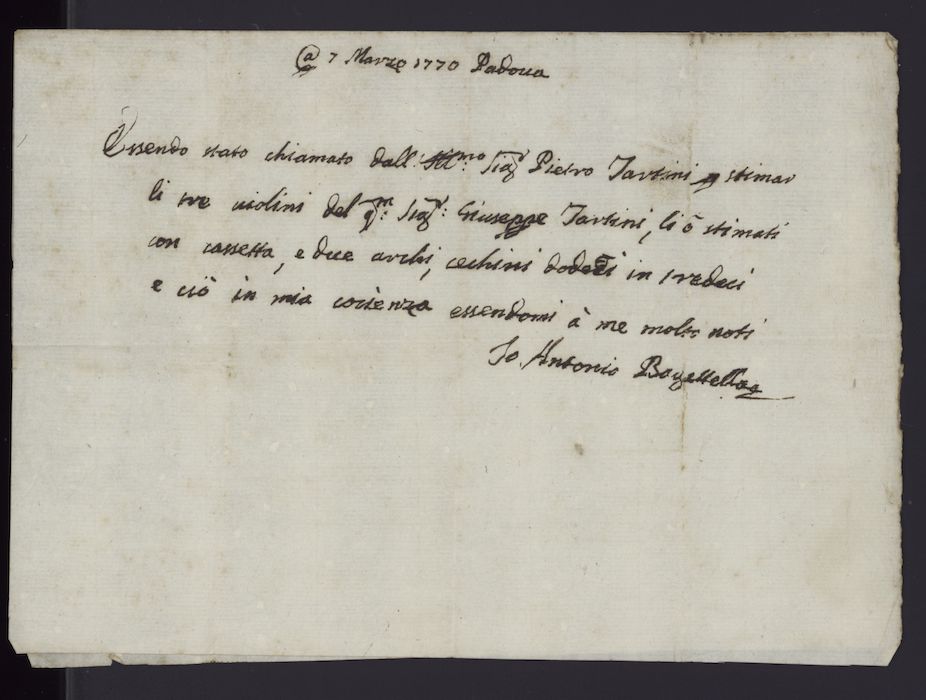 @ 7 Marzo 1770 Padoua
Essendo stato chiamato dall' Ill.mo Sigr Pietro Tartini p stimar
li tre uiolini del qm: Sigr: Giuseppe Tartini, li ò stimati
con cassetta, e due archi, cechini dodeci in tredeci
e ciò in mia cocienza essendomi à me molto noti
Io Antonio Bagattella